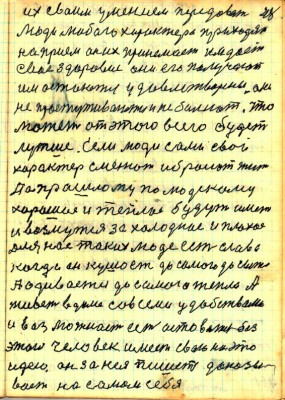 их своим умением передоват 28
люди любого характера приходят
на прием он их принимает и медает
свое здоровие они его получают
им остаются удовлетворены, они
не простуживаются и не болеют. Что
может от этого всего будет
лутше. Если люди самы свой
характер сменют и бросют
По прошлому по людскому
хорошое и теплое будут имет
и возмутся за холодное и плохое
для нас таких люде ест слава
когда он кушост до самого до сыта
А одиваетя до самого тепла А
живет в доме со всеми удобствами
и воз можност ест оставать без
этого человек имеет свою на это
идею, он за нея пишет доказы
вает на самом себя